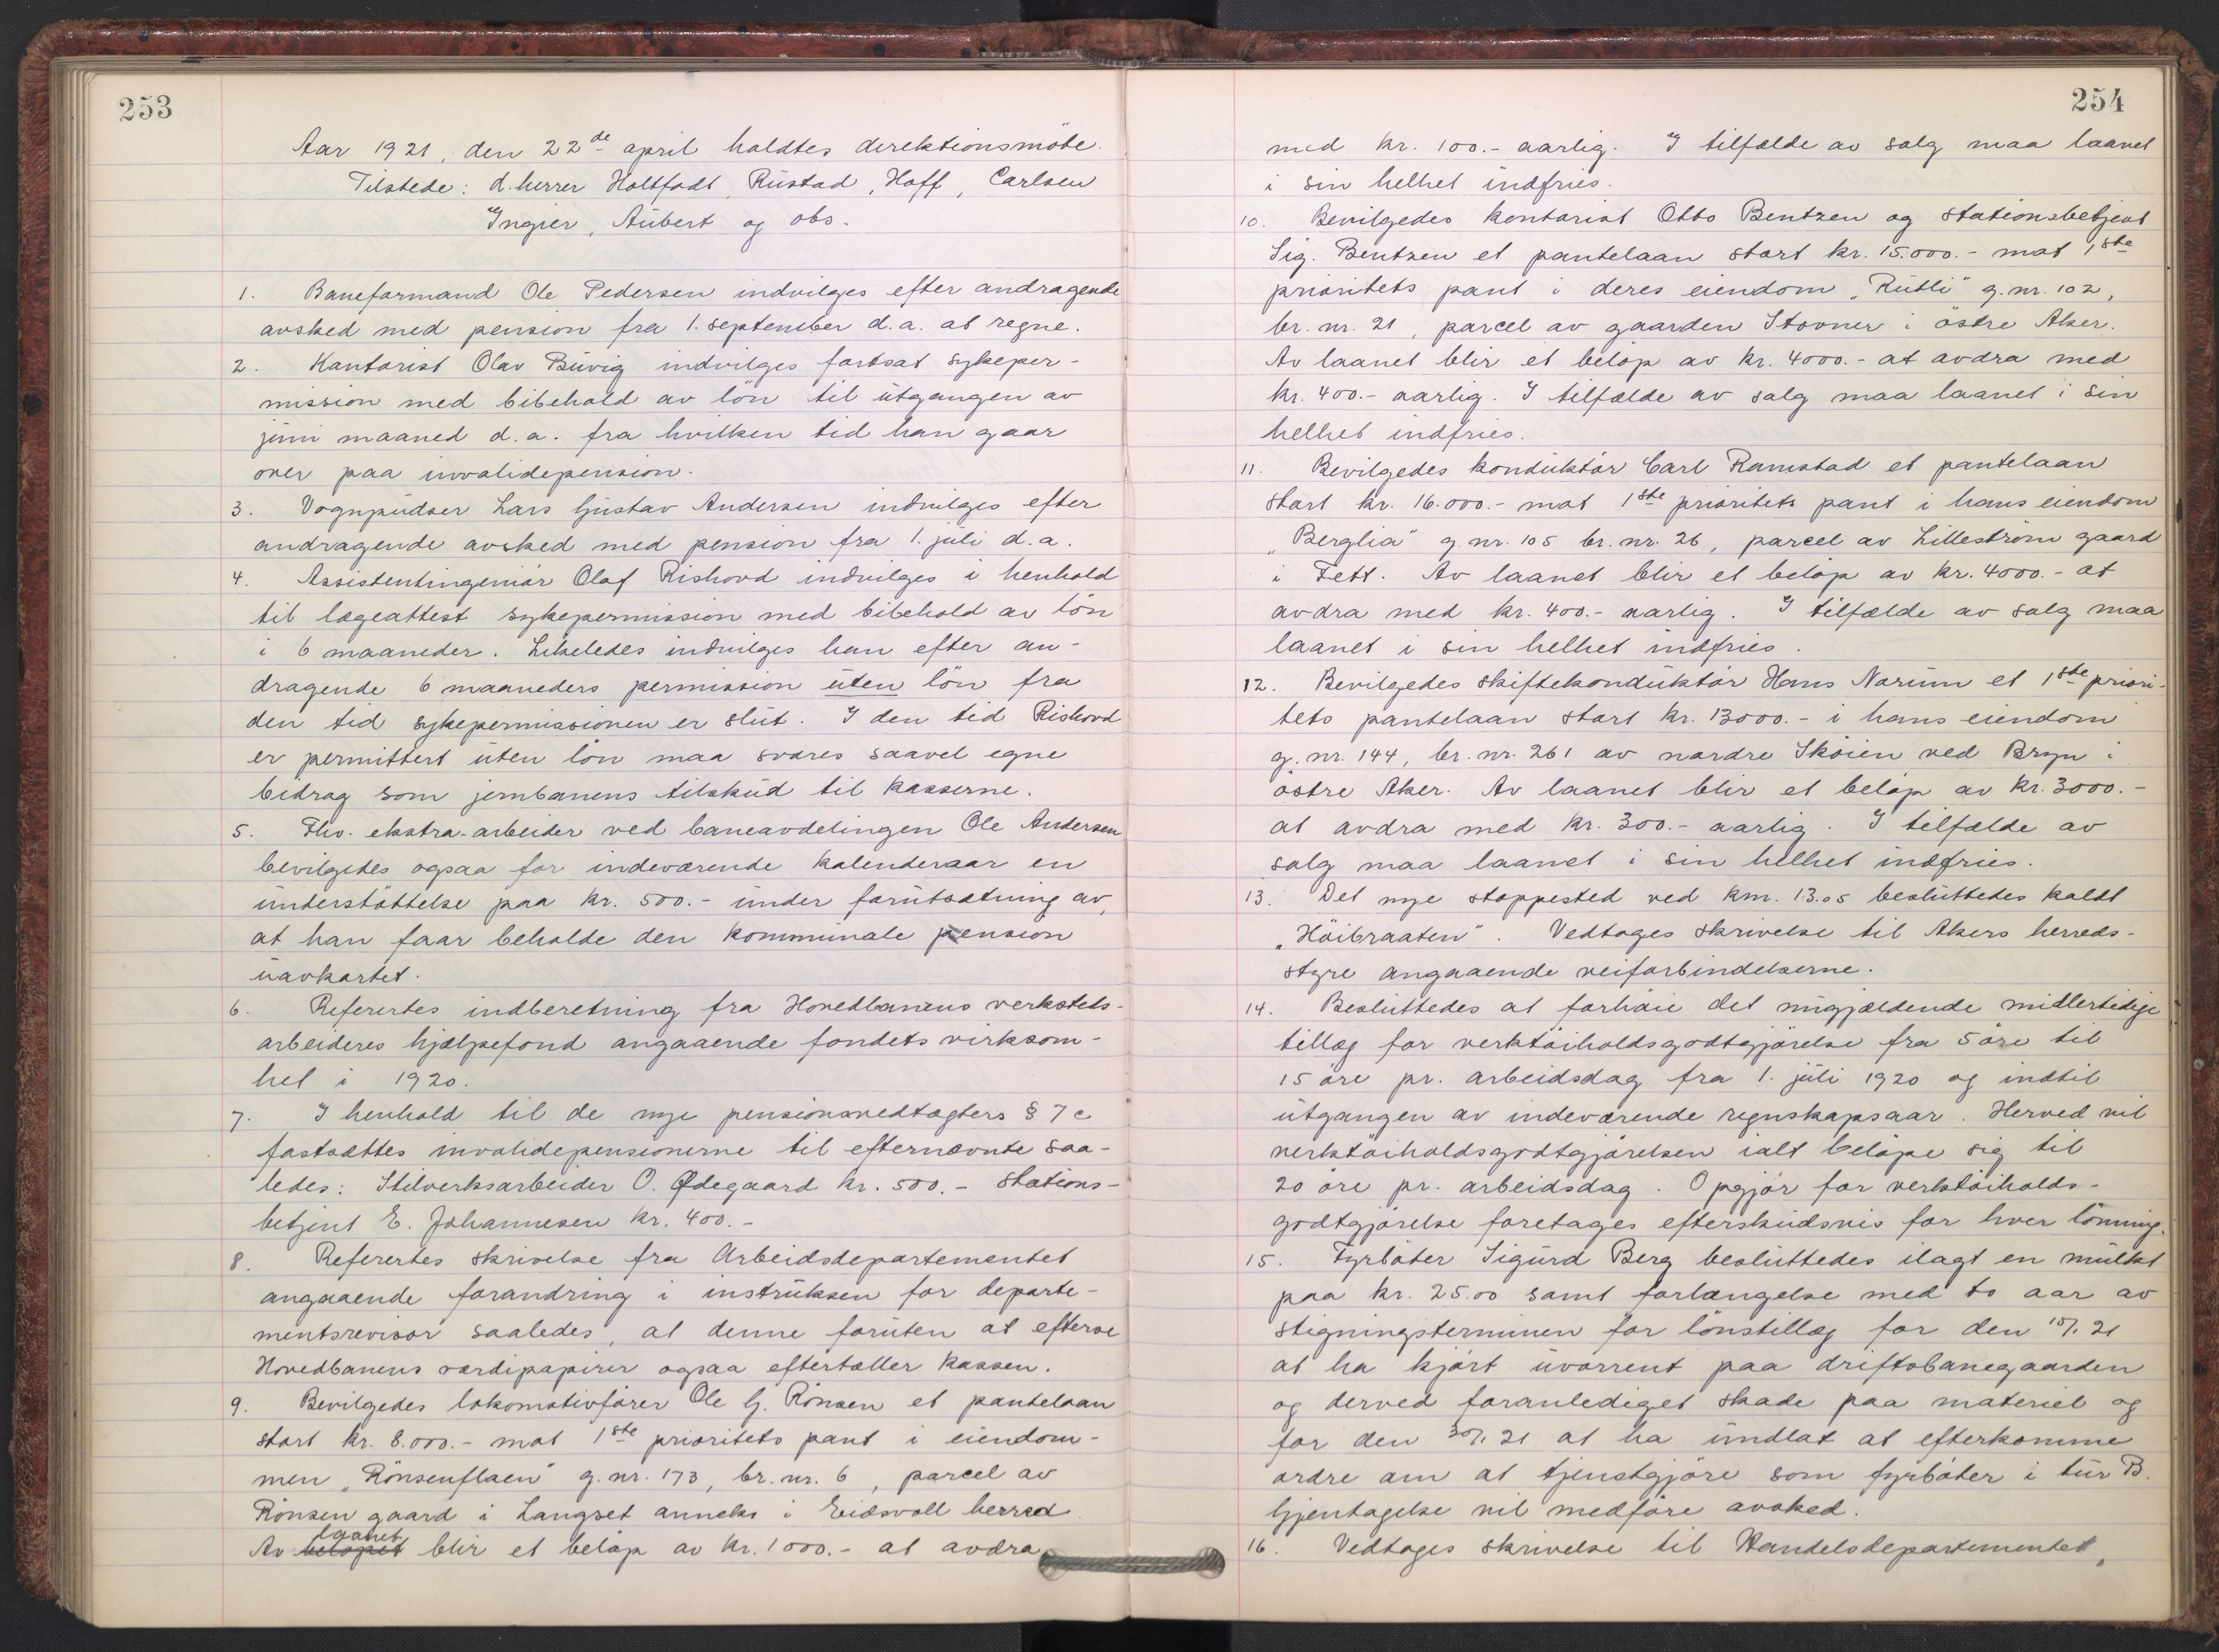 253
Aar 1921, den 22de april holdtes direktionsmöte.
Tilstede: d.herrer Holtfodt, Rustad, Hoff, Carlsen
Ingier, Aubert og obs.
1. Baneformand Ole Pedersen indvilges efter andragende
avsked med pension fra 1. september d.a. at regne.
2. Kontorist Olav Buvig indvilges fortsat sykeper-
mission med bibehold av lön til utgangen av
juni maaned d.a. fra hvilken tid han gaar
over paa invalidepension.
3. Vognpudser Lars Gustav Andersen indvilges efter
andragende avsked med pension fra 1. juli d.a.
4. Assistentingeniör Olaf Rishovd indvilges i henhold
til lægeattest sykepermission med bibehold av lön
i 6 maaneder. Likeledes indvilges han efter an-
dragende 6 maaneders permission uten lön fra
den tid sykepermissionen er slut. I den tid Rishovd
er permittert uten lön maa svares saavel egne
bidrag som jernbanens tilskud til kasserne.
5. Fhv. ekstra-arbeider ved baneavdelingen Ole Andersen
bevilgedes ogsaa for indeværende kalenderaar en
understöttelse paa kr. 500.- under forutsætning av,
at han faar beholde den kommunale pension
uavkortet.
6. Referertes indberetning fra Hovedbanens verksteds-
arbeideres hjælpefond angaaende fondets virksom-
het i 1920.
7. I henhold til de nye pensionsvedtægters § 7c
fastsættes invalidepensionerne til efternævnte saa-
ledes: Stilverksarbeider O. Ødegaard kr. 500.- Stations-
betjent E. Johannesen kr. 400.-
8. Referertes skrivelse fra Arbeidsdepartementet
angaaende forandring i instruksen for departe-
mentsrevisor saaledes, at denne foruten at efterse
Hovedbanens værdipapirer ogsaa eftertæller kassen.
9. Bevilgedes lokomotivförer Ole G. Rönsen et pantelaan
stort kr. 8.000.- mot 1ste prioritets pant i eiendom-
men „Rönsenflaen" g.nr. 173, br.nr. 6, parcel av
Rönsen gaard i Langset anneks i Eidsvoll herred.
laanet
Av belöpet blir et belöp av kr. 1000.- at avdra
254
med kr. 100.- aarlig. I tilfælde av salg maa laanet
i sin helhet indfries.
10. Bevilgedes kontorist Otto Bentzen og stationsbetjent
Sig. Bentzen et pantelaan stort kr. 15.000.- mot 1ste
prioritets pant i deres eiendom „Rütli" g.nr. 102,
br.nr. 21, parcel av gaarden Stovner i östre Aker.
Av laanet blir et belöp av kr. 4000.- at avdra med
kr. 400.- aarlig. I tilfælde av salg maa laanet i sin
helhet indfries.
11. Bevilgedes konduktör Carl Ramstad et pantelaan
stort kr. 16.000.- mot 1ste prioritets pant i hans eiendom
„Berglia" g.nr. 105 br.nr. 26, parcel av Lilleström gaard
i Fett. Av laanet blir et belöp av kr. 4000.- at
avdra med kr. 400.- aarlig. I tilfælde av salg maa
laanet i sin helhet indfries.
12. Bevilgedes skiftekonduktör Hans Narum et 1ste priori-
tets pantelaan stort kr. 13000.- i hans eiendom
g.nr. 144, br.nr. 261 av nordre Sköien ved Bryn i
östre Aker. Av laanet blir et belöp av kr. 3000.-
at avdra med kr. 300.- aarlig. I tilfælde av
salg maa laanet i sin helhet indfries.
13. Det nye stoppested ved km. 13.05 besluttedes kaldt
„Höibraaten". Vedtoges skrivelse til Akers herreds-
styre angaaende veiforbindelserne.
14. Besluttedes at forhöie det nugjældende midlertidige
tillæg for verktöiholdsgodtgjörelse fra 5 öre til
15 öre pr. arbeidsdag fra 1. juli 1920 og indtil
utgangen av indeværende regnskapsaar. Herved vil
verktöiholdsgodtgjörelsen ialt belöpe sig til
20 öre pr. arbeidsdag. Opgjör for verktöiholds-
godtgjörelse foretages efterskudsvis for hver lönning.
15. Fyrböter Sigurd Berg besluttedes ilagt en mulkt
paa kr. 25.00 samt forlængelse med to aar av
stigningsterminen for lönstillæg for den 15/1 21
at ha kjört uvorrent paa driftsbanegaarden
og derved foranlediget skade paa materiel og
for den 30/1 21 at ha undlat at efterkomme
ordre om at tjenstgjöre som fyrböter i tur B.
Gjentagelse vil medföre avsked.
16. Vedtoges skrivelse til Handelsdepartementet,